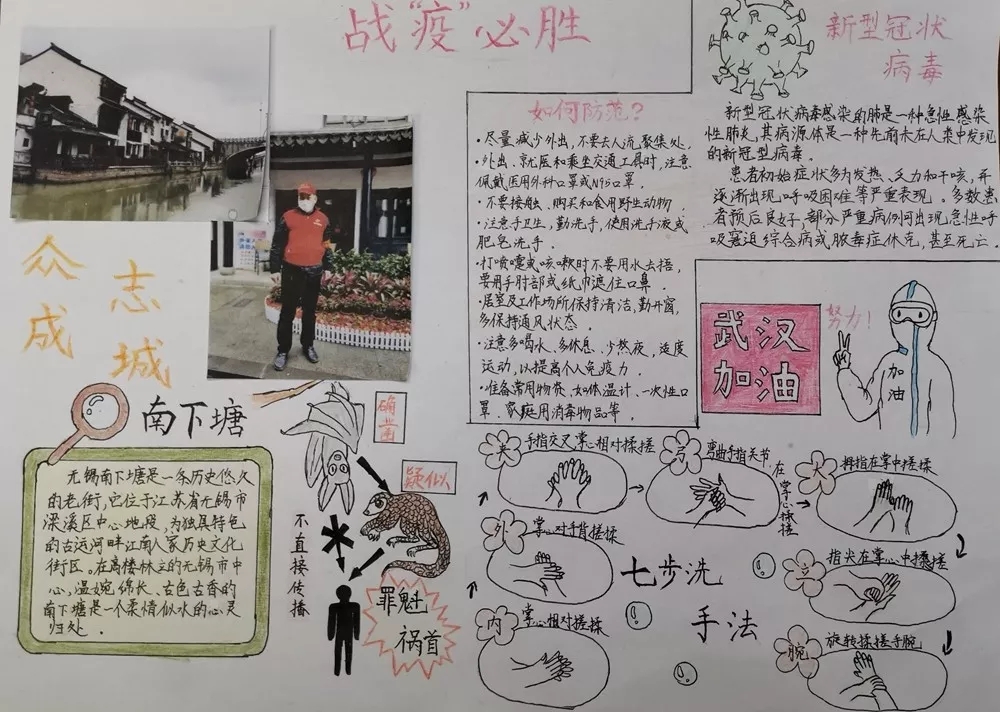 战“疫”必胜
新型冠状
病毒
新型冠状病毒感染的肺是一种急性感染
性肺炎,其病源体是一种先前未在人类中发现
的新冠型病毒.
患者初始症状多为发热、乏力和干咳,并
逐渐出现呼吸困难等严重表现。多数患
者预后良好,部分严重病例可出现急性呼
吸窘迫综合病或脓毒症休克,甚至死亡.
如何防范?
·尽量减少外出,不要去人流聚集处.
·外出、就医和乘坐交通工具时,注意
佩戴医用外科口罩或N95口罩.
·不要接触、购买和食用野生动物.
·注意手卫生,勤洗手,使用洗手液或
肥皂洗手.
·打喷嚏或咳嗽时不要用水去捂,
要用手肘部或纸巾遮住口鼻.
·居室及工作场所保持清洁,勤开窗,
多保持通风状态.
·注意多喝水、多休息、少熬夜,适度
运动,以提高个人免疫力.
·准备常用物资,如体温计、一次性口
罩、家庭用消毒物品等.
众志成城
武汉
加油
努力!
加油
南下塘
无锡南下塘是一条历史悠久
的老街,它位于江苏省无锡市
梁溪区中心地段,为独具特色
的古运河畔江南人家历史文化
街区。在高楼林立的无锡市中
心,温婉绵长、古色古香的
南下塘是一个柔情似水的心灵
归处.
确凿
疑似
不直接传播
罪魁
祸首
七步洗
手法
内
掌心相对搓揉
外
掌心对手背搓揉
夹
手指交叉掌心相对揉搓
弓
弯曲手指关节
在掌心揉搓
大
拇指在掌中揉搓
立
指尖在掌心中揉搓
腕
旋转揉搓手腕